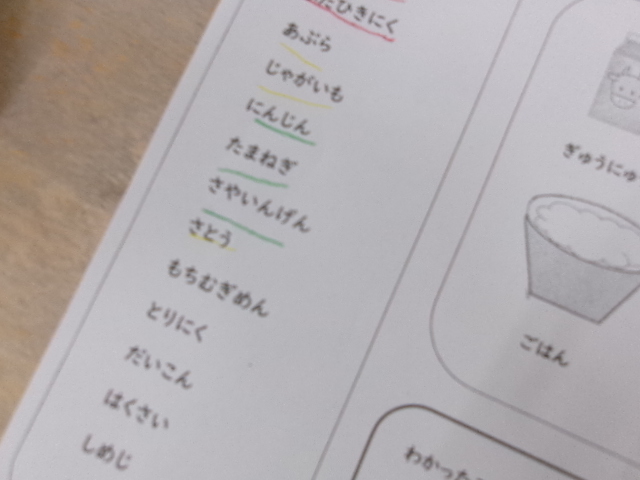 たひきにく
あぶら
じゃがいも
にんじん
たまねぎ
さやいんげん
さとう
もちむぎめん
とりにく
だいこん
はくさい
しめじ
ぎゅうにゅ
ごはん
わかった